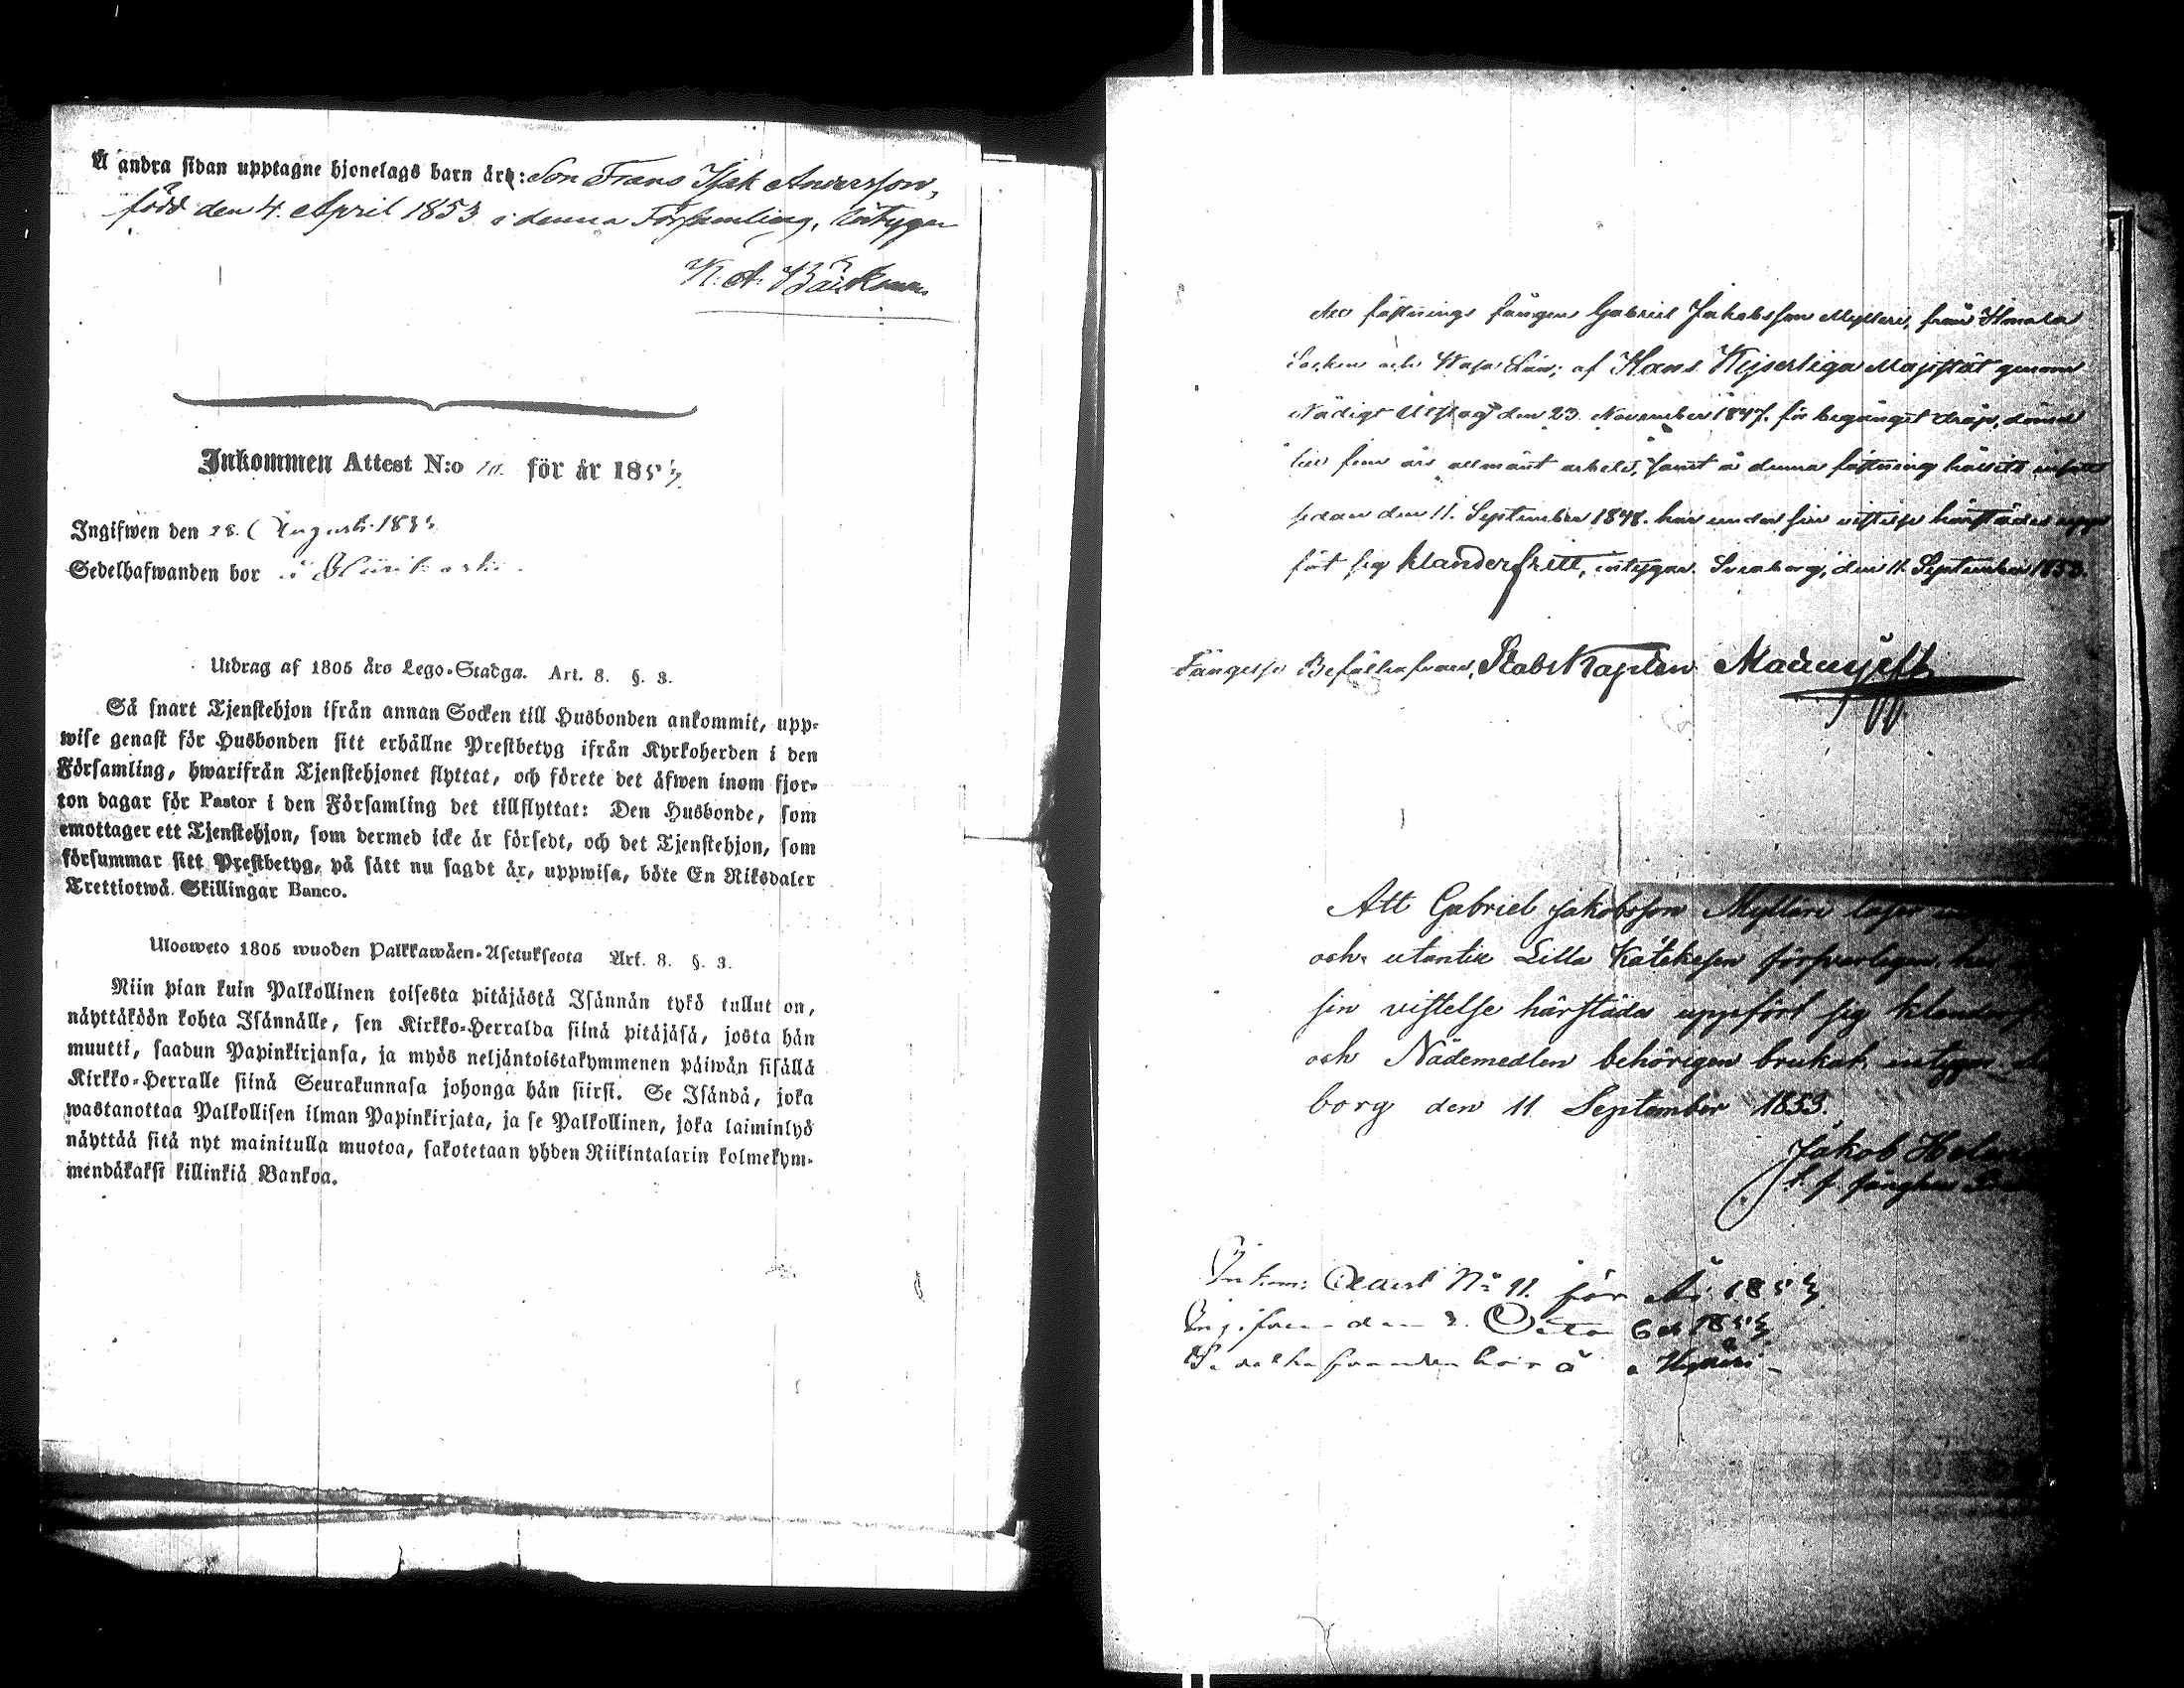 Å andra sidan upptagne hjonelags barn är: Son Frans Isak Andersson,
född den 4. April 1853 i denna Församling, intygar
K. A. Bäckman
Inkommen Attest N:o 10. för år 1853
Ingifwen den 28. Augusti 1853
Sedelhafwanden bor i
Utdrag af 1805 års Lego-Stadga. Art. 8. §. 3.
Så snart Tjenstehjon ifrån annan Socken till Husbonden ankommit, upp-
wise genast för Husbonden sitt erhållne Prestbetyg ifrån Kyrkoherden i den
Församling, hwarifrån Tjenstehjonet flyttat, och förete det äfwen inom fjor-
ton dagar för Pastor i den Församling det tillflyttat: Den Husbonde, som
emottager ett Tjenstehjon, som dermed icke är försedt, och det Tjenstehjon, som
försummar sitt Prestbetyg, på sätt nu sagdt är, uppwisa, böte En Riksdaler
Trettiotwå Skillingar Banco.
Ulosweto 1805 wuoden Palkkawäen-Asetuksesta Art. 8. §. 3.
Niin pian kuin Palkollinen toisesta pitäjästä Isännän tykö tullut on,
näyttäköön kohta Isännälle, sen Kirkko-Herralda siinä pitäjäsä, josta hän
muutti, saadun Papinkirjansa, ja myös neljäntoistakymmenen päiwän sisällä
Kirkko-Herralle siinä Seurakunnasa johonga hän siirsi. Se Isändä, joka
wastanottaa Palkollisen ilman Papinkirjata, ja se Palkollinen, joka laiminlyö
näyttää sitä nyt mainitulla muotoa, sakotetaan yhden Riikintalarin kolmekym-
mendäkaksi killinkiä Bankoa.
Att fästnings fången Gabriel Jakobsson Mylläri, från Ilmola
Socken och Wasa Län; af Hans Kejserliga Majestät genom
Nådigt Utslag den 23. November 1847. för begånget dråp, dömd
till fem års allmänt arbete, samt å denna fästning hållits
sedan den 11. September 1848. har under sin vistelse härstädes upp
fört sig klanderfritt, intygar. Sveaborg, den 11. September 1853.
Fängelse Befälhafvare, StabsKapten
Att Gabriel Jakobsson Mylläri läser
och utantill Lilla Katekesen försvarligen, har
sin vistelse härstädes uppfört sig
och Nådemedlen behörigen brukat, intygar.
borg den 11 September 1853.
Jakob
t. f. fängelse
Inkom: Attest No 11. för År 1853
Ingifven den 2. October 1853
Sedelhafvanden bor å Mylläri